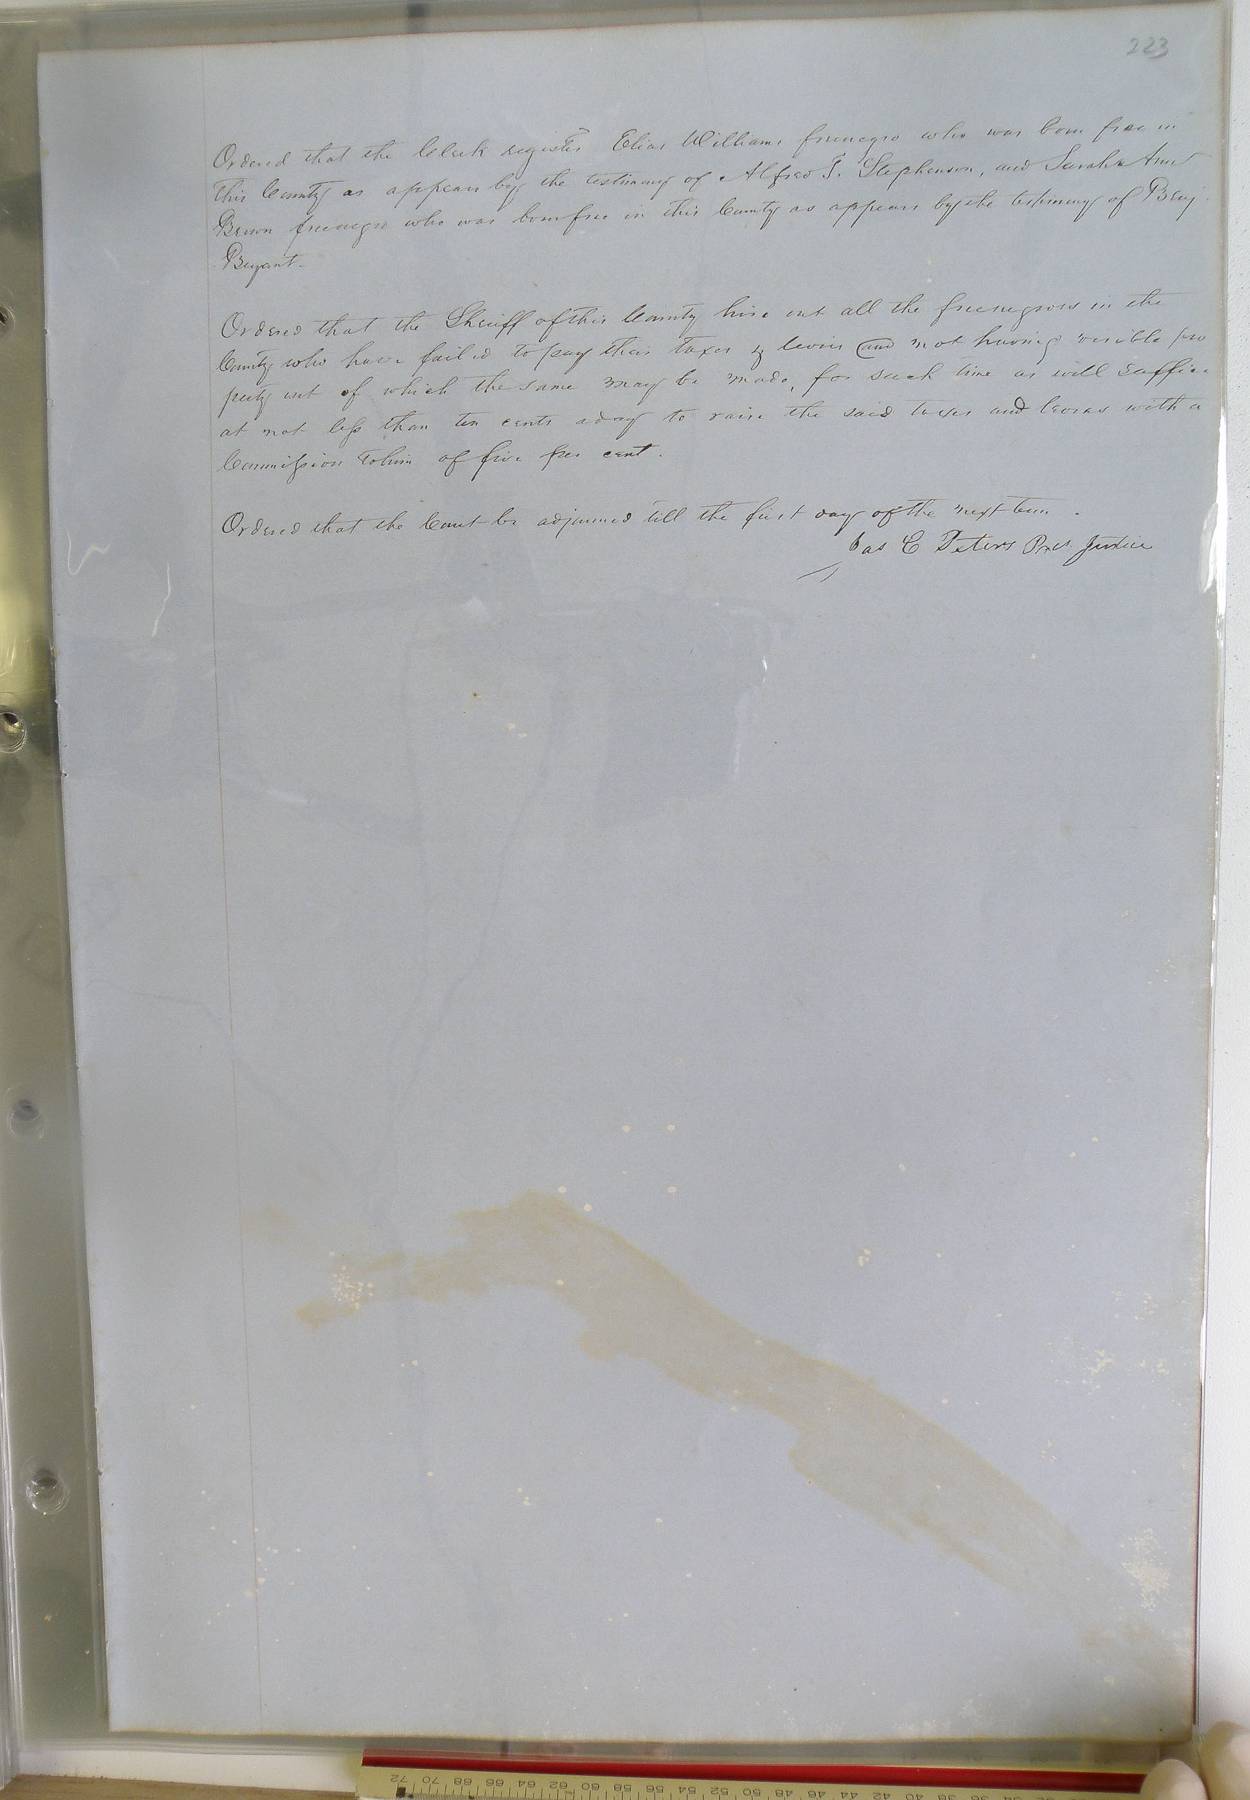 223
Ordered that the Clerk register Elias Williams freenegro who was born free in
this County as appears by the testimony of Alfred T. Stephenson, and Sarah Ann
Brown freenegro who was bornfree in this County as appears by the testimony of Benj
Bryant.
Ordered that the Sheriff of this County hire out all the freenegroes in the
County who have failed to pay their taxes & levies and not having visible pro
perty out of which the same may be made, for such time as will suffice
at not less than ten cents aday to raise the said taxes and levies with a
Commission tohim of five per cent.
Ordered that the Court be adjourned till the first day of the next term.
Jas C Peters Pres. Justice
72 70 68 66 64 62 60 58 56 54 52 50 48 46 44 42 40 38 36 34 32